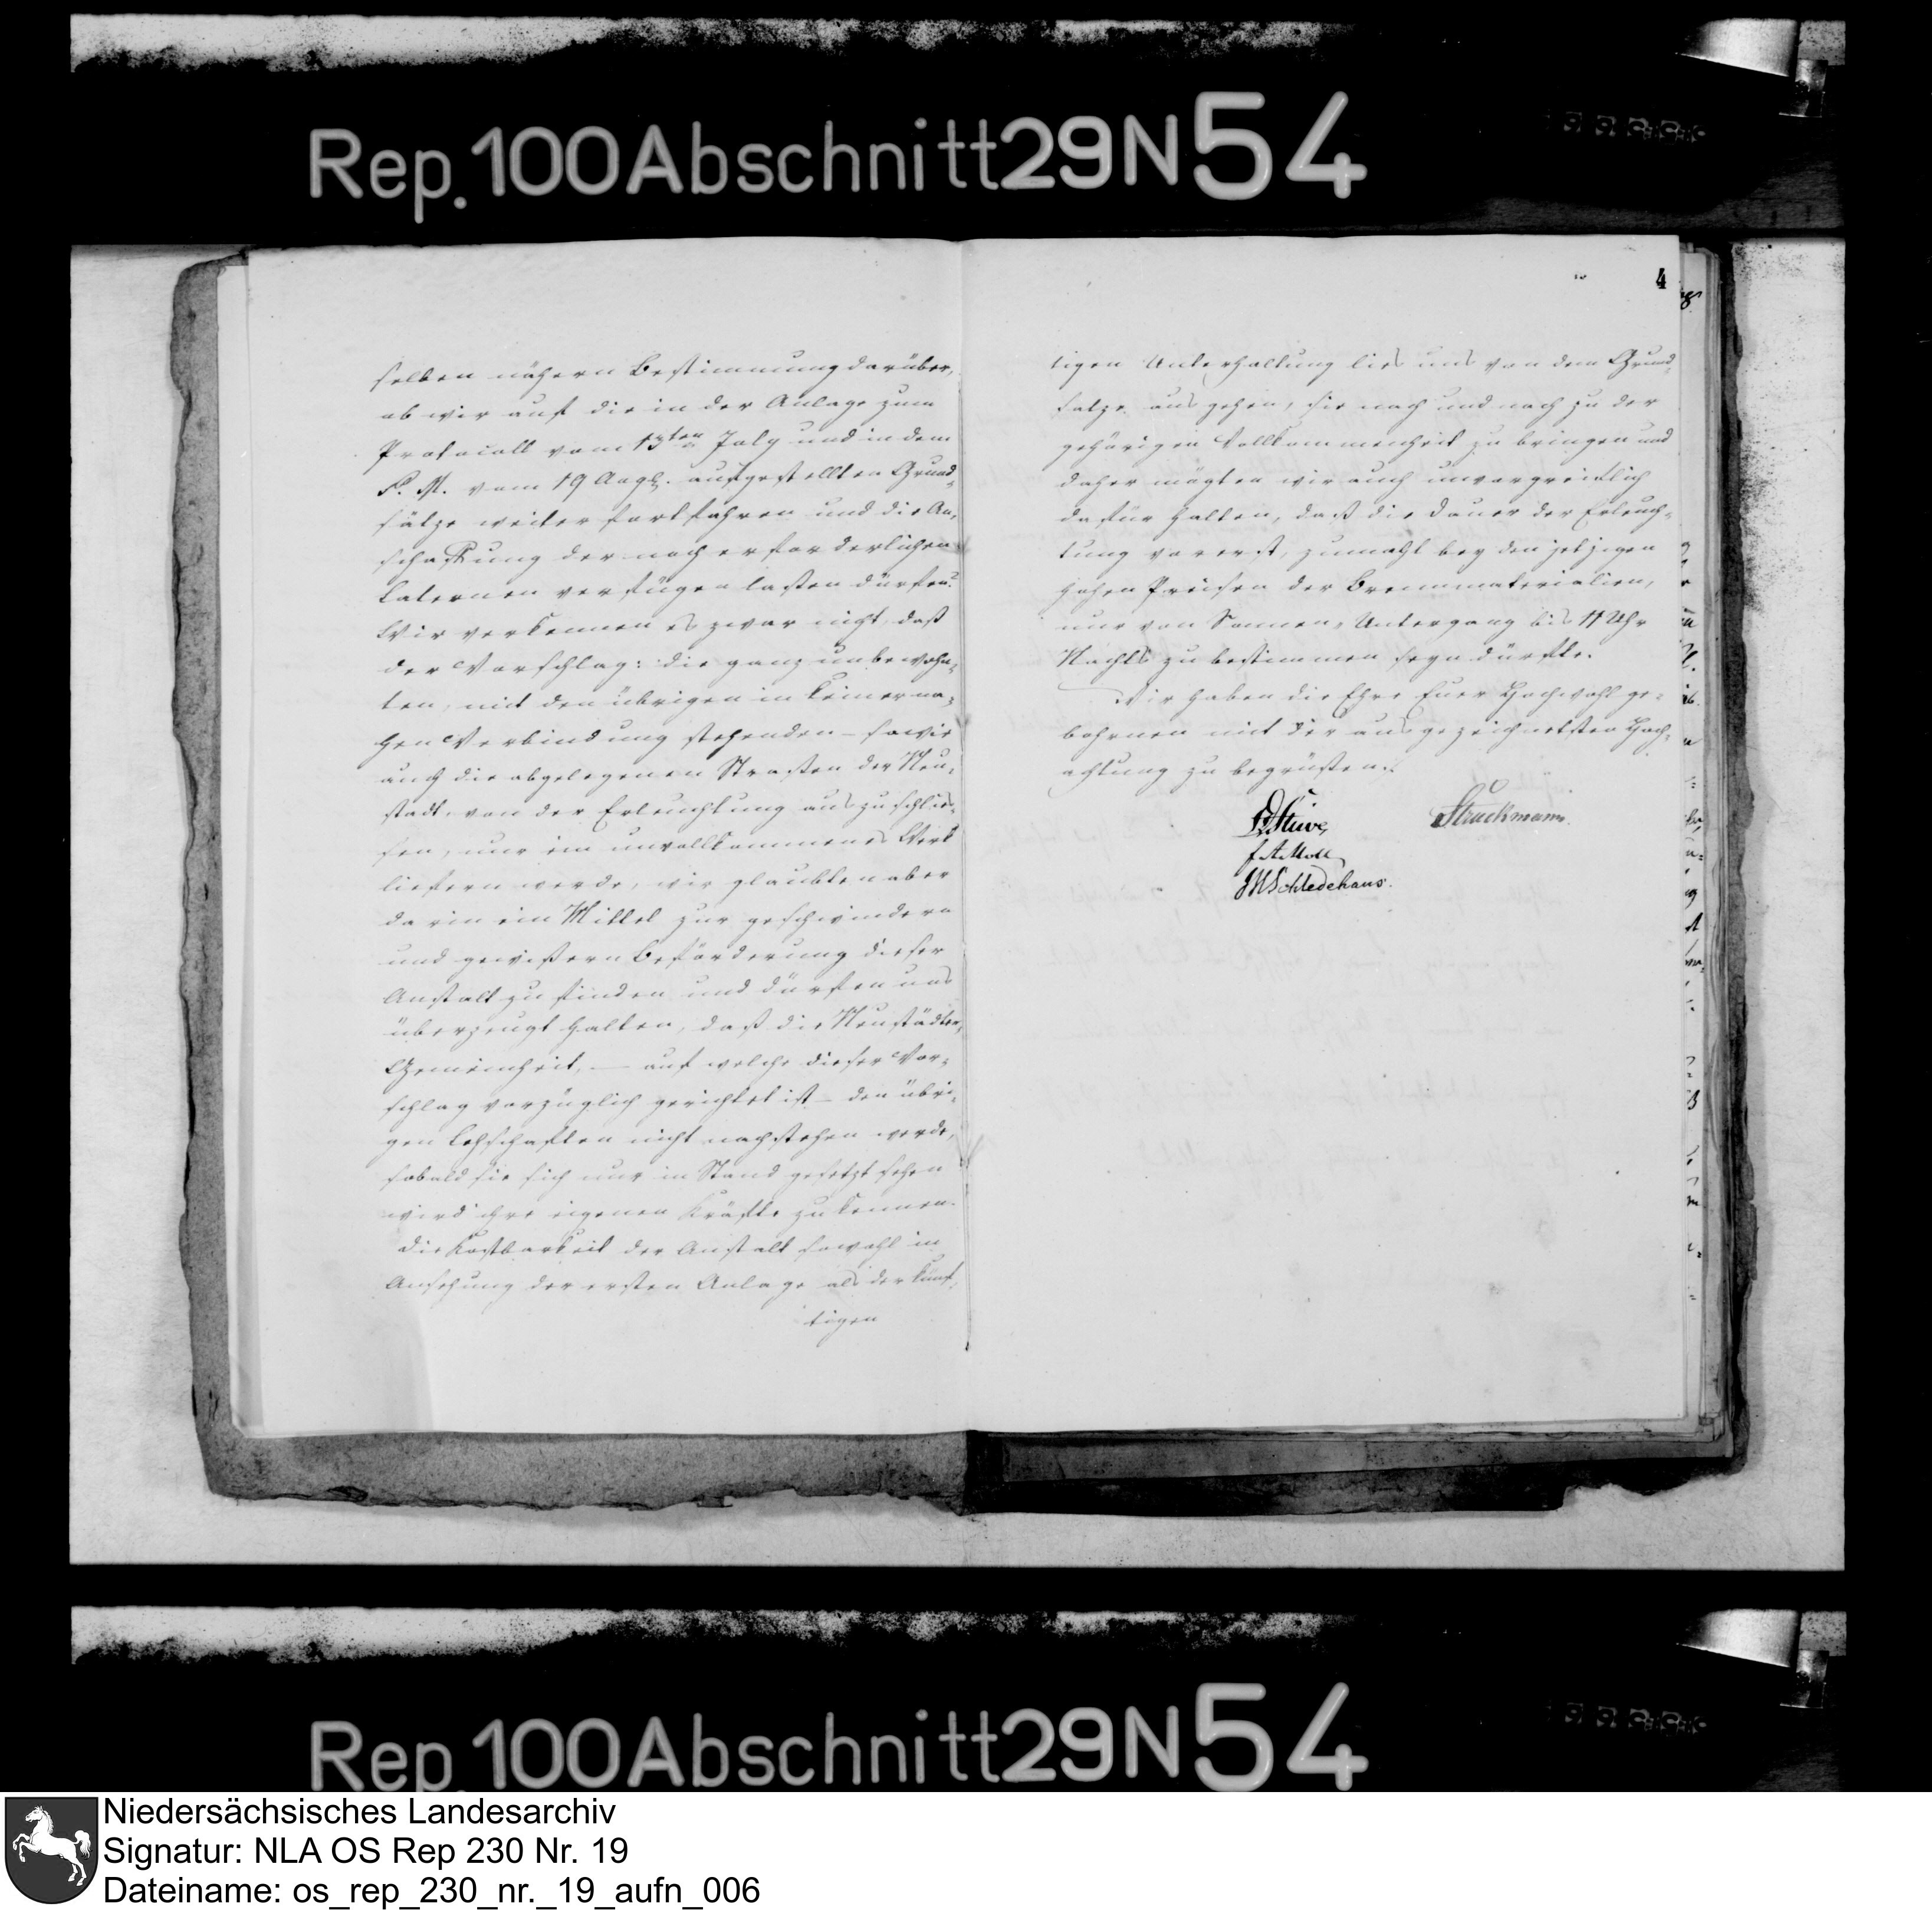 Rep. 100 Abschnitt 29 N 54
4
selben nähern Bestimmung darüber,
ob wir auf die in der Anlage zum
Protocoll vom 13ten July und in dem
P. M. vom 19 Augl. aufgestellten Grund-
sätze weiter fortfahren und die An-
schaffung der noch erforderlichen
Laternen verfügen lassen dürfen?
Wir verkennen es zwar nicht, daß
der Vorschlag: die ganz unbewohn-
ten, mit den übrigen in keiner na-
hen Verbindung stehenden – sowie
auch die abgelegenen Strassen der Neu-
stadt, von der Erleuchtung auszuschlies-
sen, nur ein unvollkommenes Werk
liefern werde, wir glaubten aber
darin ein Mittel zur geschwindern
und gewißern Beförderung dieser
Anstalt zu finden und dürfen uns
überzeugt halten, daß die Neustädter-
Gemeinheit, — auf welche dieser Vor-
schlag vorzüglich gerichtet ist – den übri-
gen Lehschaften nicht nachstehen werde,
sobald sie sich nur in Stand gesetzt sehen
wird ihre eigenen Kräfte zu kennen.
Die Kostbarkeit der Anstalt sowohl in
Ansehung der ersten Anlage als der künf-
tigen
tigen Unterhaltung ließ uns von dem Grund-
satze ausgehen, sie nach und nach zu der
gehörigen Vollkommenheit zu bringen und
daher mögten wir auch unvorgreiflich
dafür halten, daß die Dauer der Erleuch-
tung vorerst, zumahl bey den jetzigen
hohen Preisen der Brennmaterialien,
nur von Sonnen-Untergang bis 11 Uhr
Nachts zu bestimmen seyn dürfte.
Wir haben die Ehre Euer Hochwohlge-
bohrnen mit der ausgezeichnetsten Hoch-
achtung zu begrüßen.
Stüve
Struckmann.
Moll
JWSchledehaus.
Rep. 100 Abschnitt 29 N 54
Niedersächsisches Landesarchiv
Signatur: NLA OS Rep 230 Nr. 19
Dateiname: os_rep_230_nr._19_aufn_006